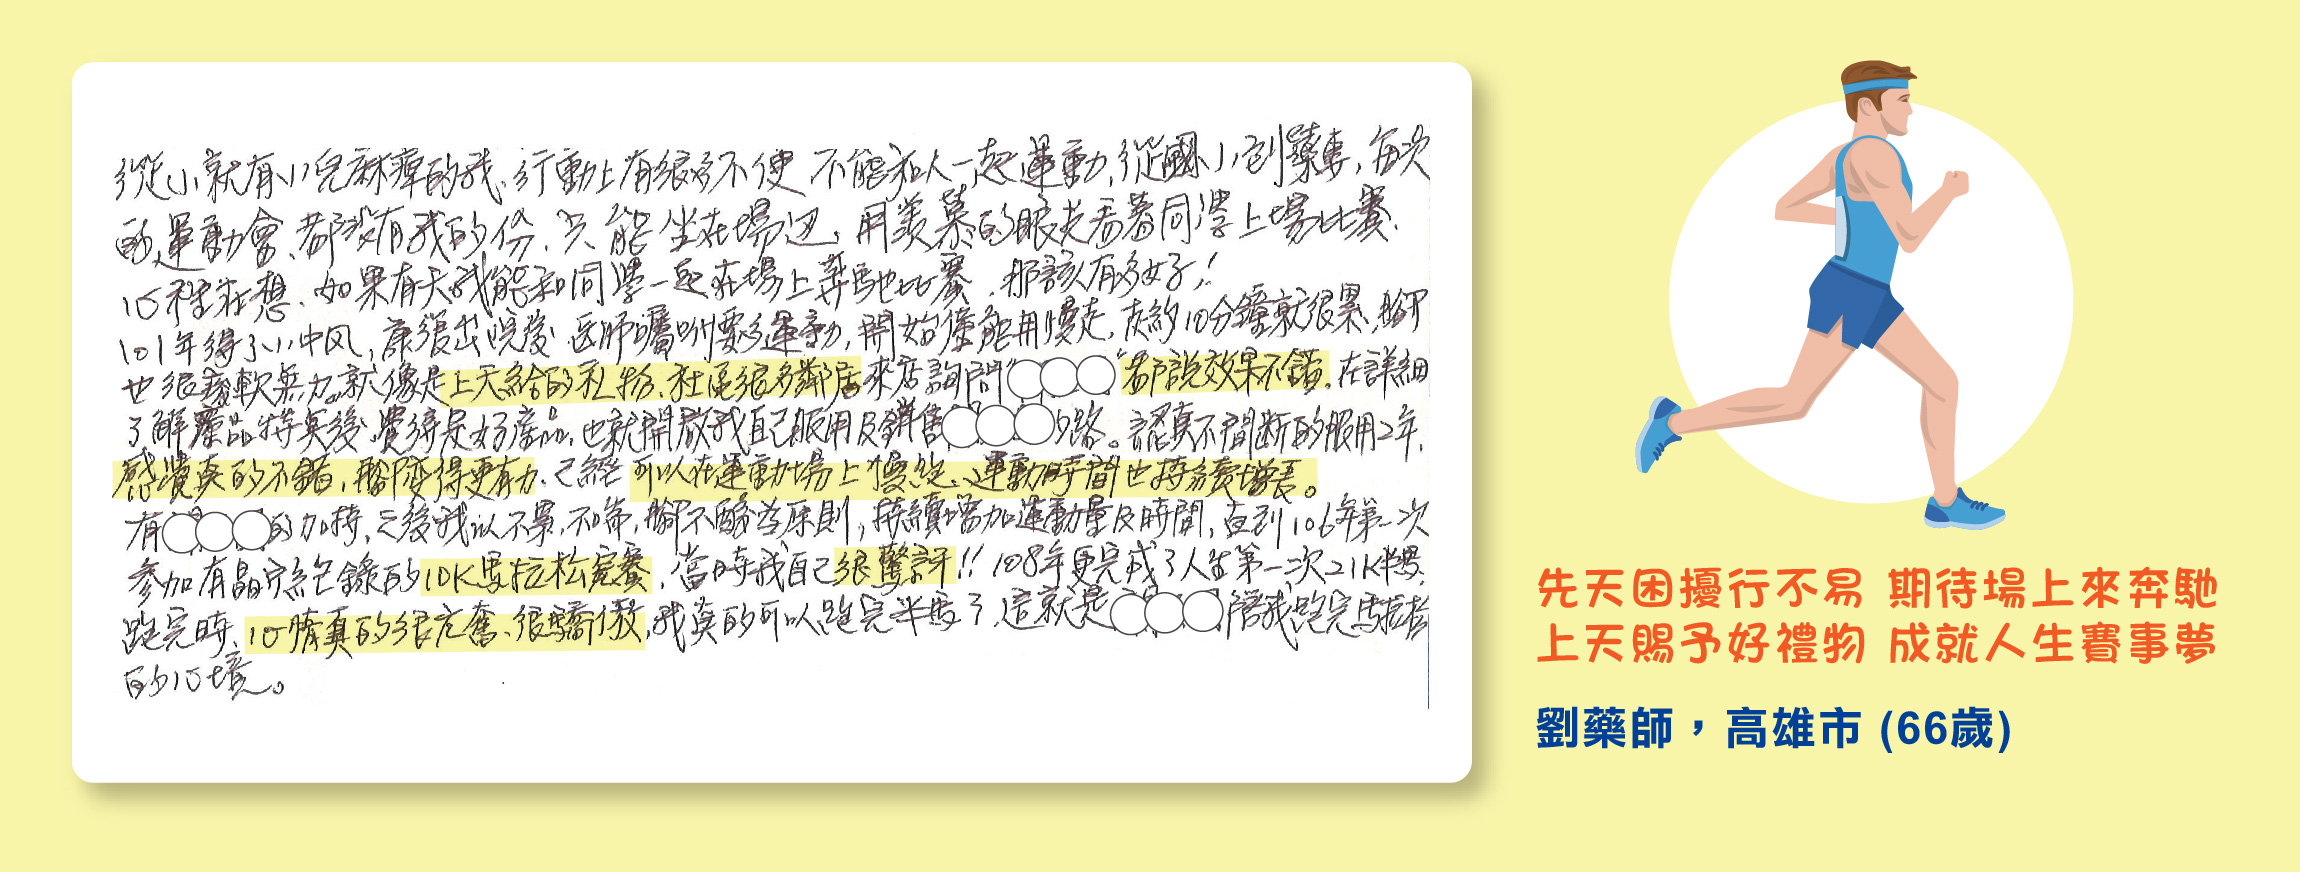 從小就有小兒麻痺的我、行動上有很多不便、不能和人一起運動,從國小到藥專,每次
的運動會、都沒有我的份、只能坐在場边、用羨慕的眼光看著同學上場比賽、
心裡在想、如果有天我能和同學一起在場上奔馳比賽、那該有多好!
101年得了小中风,康復出院後、医師囑咐要多運動,開始僅能用慢走,大約10分鐘就很累、腳
也很痠軟無力。就像是上天給的礼物、社區很多鄰居來店詢問"○○○"都說效果不錯。在詳細
了解產品特質後、覺得是好產品、也就開啟我自己服用及銷售○○○的路。認真不間斷的服用2年、
感覺真的不錯,腳变得更有力、已經可以在運動場上慢跑、運動時間也持續增長。
有○○○的加持,之後我以不累,不喘,腳不酸為原則,持續增加運動量及時間,直到106年第一次
參加有晶片紀錄的10K馬拉松完賽,當時我自己很驚訝!! 108年更完成了人生第一次21K半馬、
跑完時、心情真的很亢奮、很驕傲,我真的可以跑完半馬了、這就是○○○陪我跑完馬拉松
的心境。
先天困擾行不易 期待場上來奔馳
上天賜予好禮物 成就人生賽事夢
劉藥師,高雄市 (66歲)